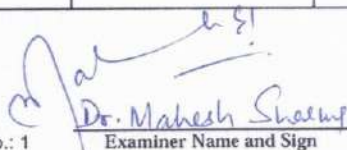 Dr. Mahesh Sharma
.: 1 Examiner Name and Sign